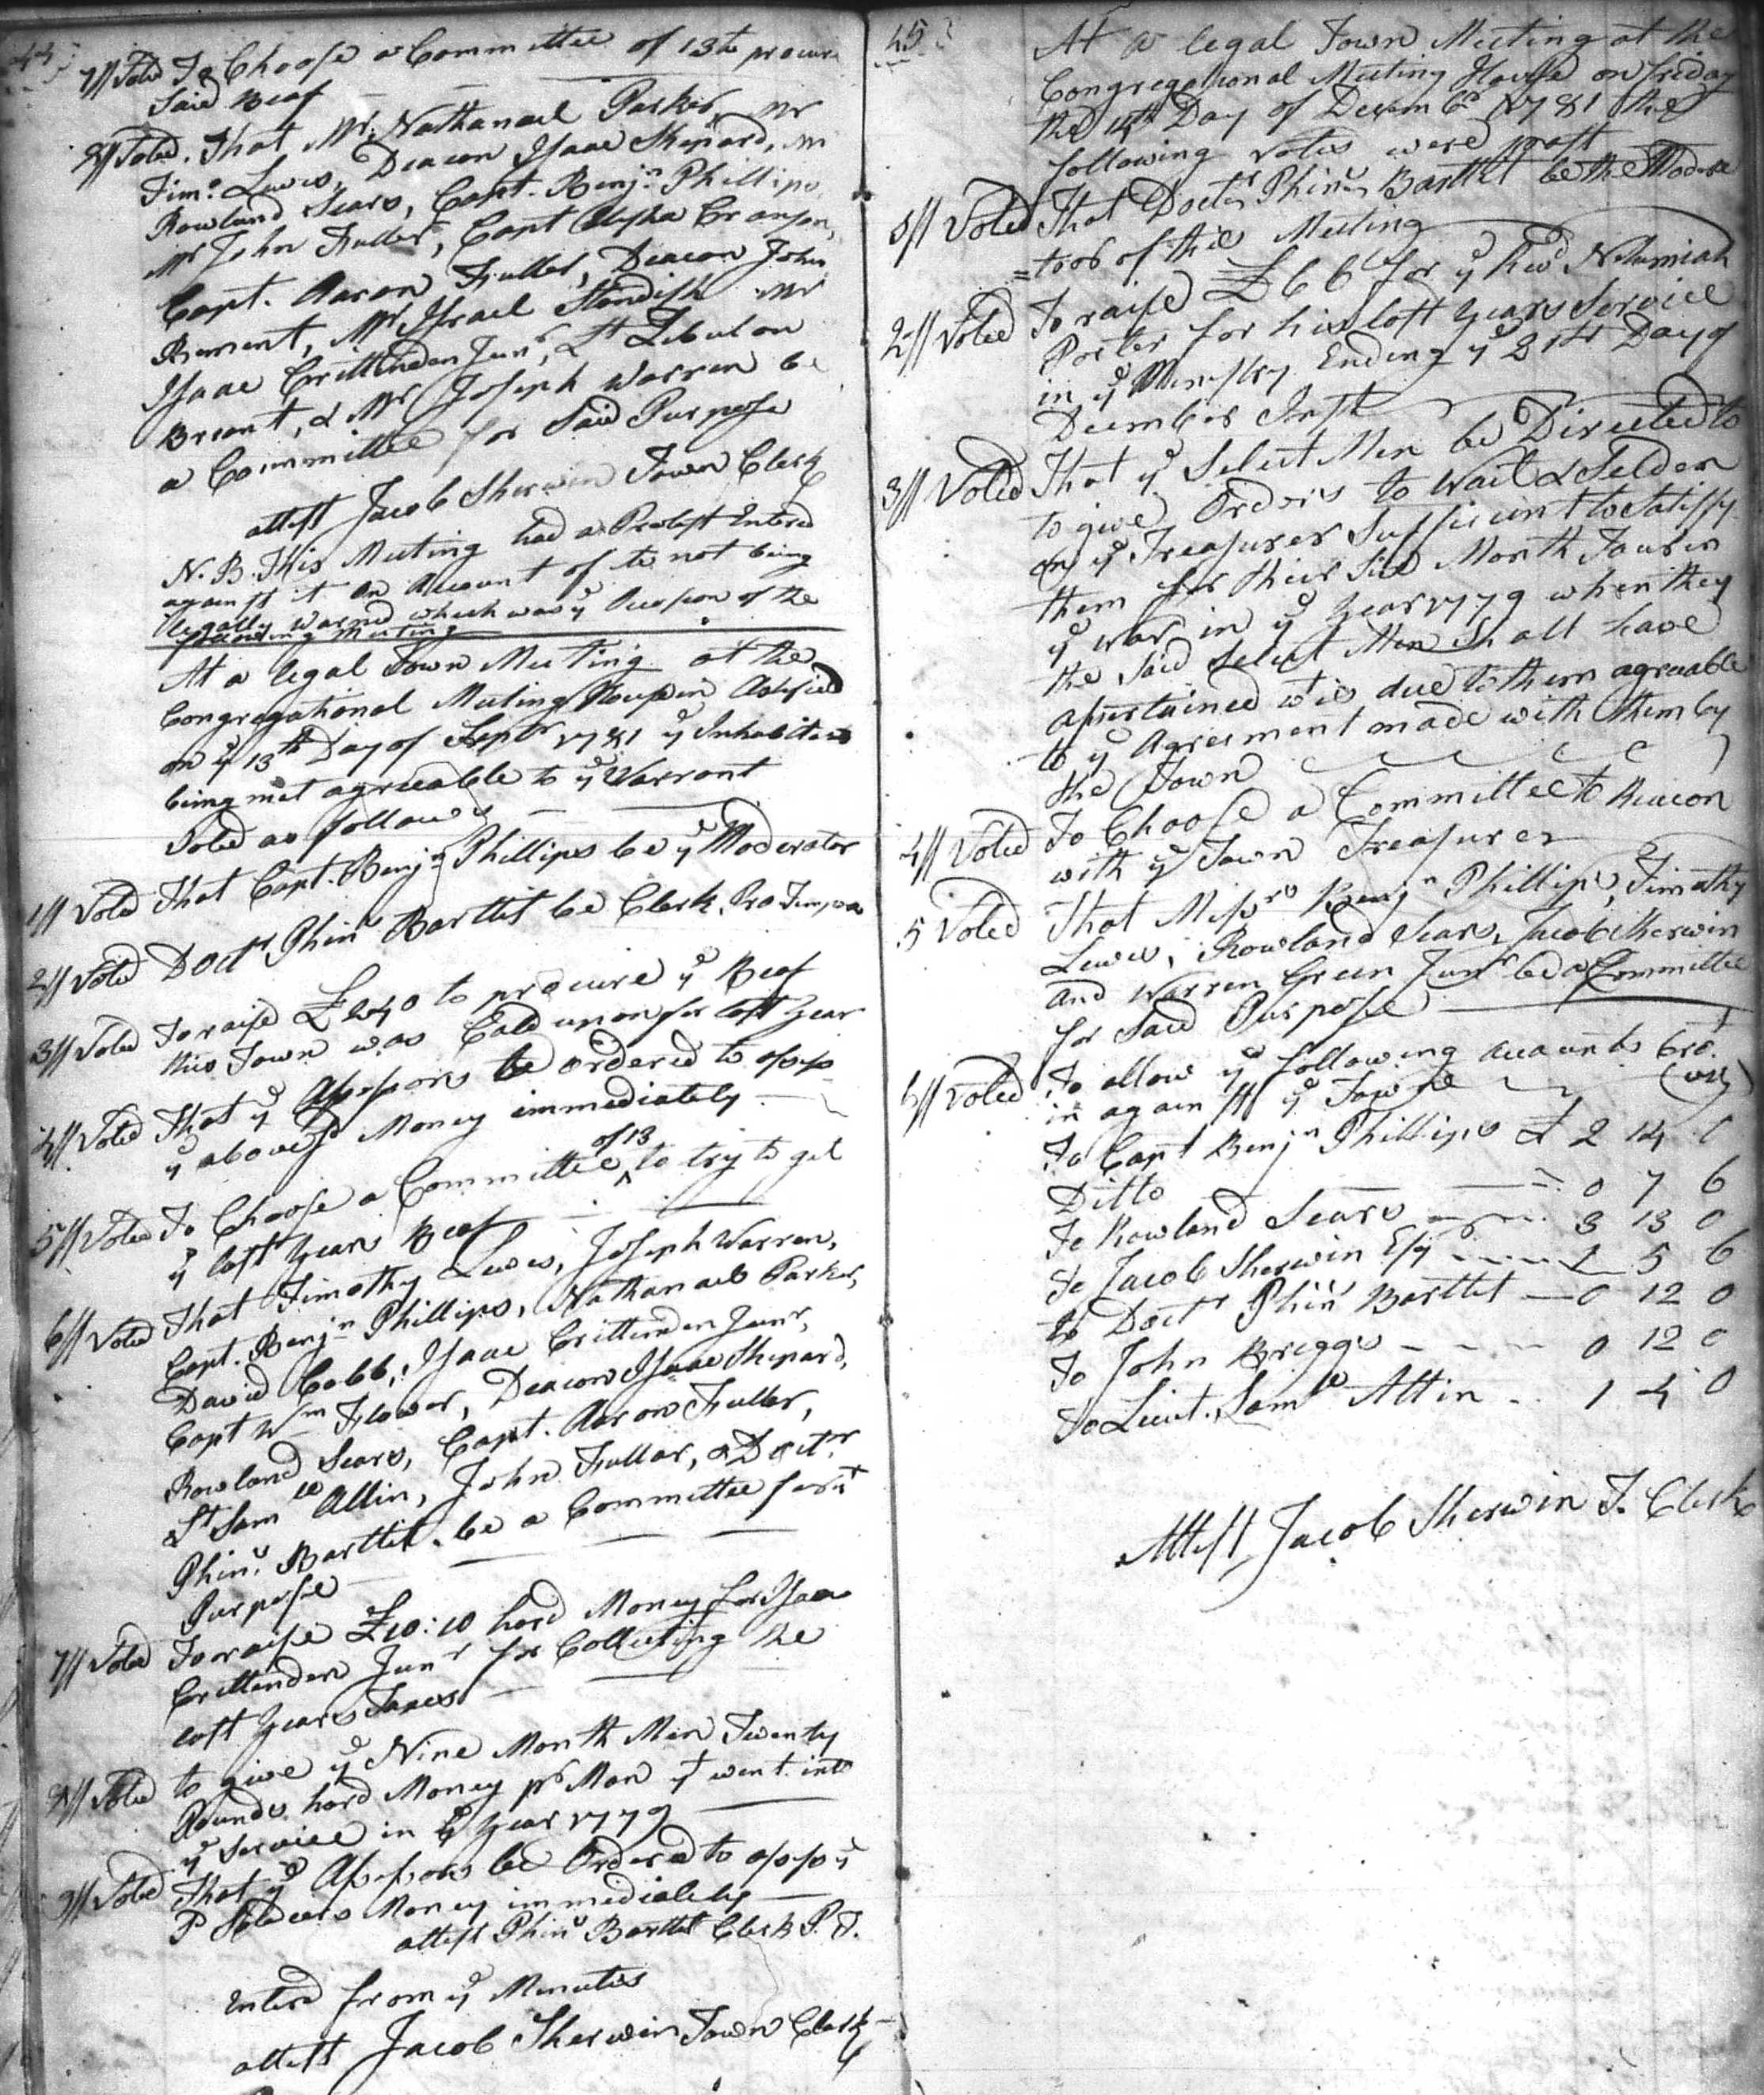 44
7ly Voted To Choose a Committee of 13 to procure
Said Beaf
8ly Voted. That Mr. Nathanael Parker, Mr
Timo. Lewis, Deacon Isaac Shepard, Mr
Rowland Sears, Capt. Benjn Phillips,
Mr John Fuller, Capt Elisha Cranson,
Capt. Aaron Fuller, Deacon John
Bement, Mr Israel Standish Mr
Isaac Crittenden Junr, Lt Zebulon
Briant, & Mr Joseph Warren be
a Committee for Said Purpose
attest Jacob Sherwin Town Clerk
N. B. This Meeting had a Protest Entered
against it on Account of its not being
legally Warned which was ye Occasion of the
following Meeting
At a legal Town Meeting at the
Congregational Meeting House in Ashfield
on ye 13th Day of Septr 1781 ye Inhabitants
being met agreeable to ye Warrant
Voted as follows
1ly Voted That Capt. Benjn Phillips be ye Moderator
2ly Voted Doctr Phins Bartlit be Clerk. Pro Tempore
3ly Voted To raise £240 to procure ye Beaf
this Town was Cald upon for last Year
4ly Voted That ye Assessors be ordered to assess
ye abovesd Money immediately
5ly Voted To Choose a Committee of 13 to try to get
ye last Years Beaf
6ly Voted That Timothy Lewis, Joseph Warren,
Capt. Benjn Phillips, Nathanael Parker,
David Cobb, Isaac Crittenden Junr,
Capt Wm Flower, Deacon Isaac Shepard,
Rowland Sears, Capt. Aaron Fuller,
Lt Samll Allin, John Fullar, & Doctr
Phins Bartlit. be a Committee for yt
Purpose
7ly Voted To raise £10:10 hard Money for Isaac
Crittenden Junr for Collecting the
last Years Taxes
8ly Voted to give ye Nine Month Men Twenty
Pounds hard Money pr Man yt went into
ye Service in ye Year 1779
9ly Voted That ye Assessors be Ordered to assess ye
Soldiers Money immediately
attest Phins Bartlit Clerk P. T.
Enterd from ye Minutes
attest Jacob Sherwin Town Clerk
45
At a legal Town Meeting at the
Congregational Meeting House on friday
the 14th Day of Decembr 1781 the
following Votes were past
1ly Voted That Doctr Phins Bartlit be the Modera
=tor of this Meeting
2ly Voted To raise £66 for ye Revd Nehemiah
Porter for his last Years Service
in ye Ministry Ending ye 21st Day of
December Inst
3ly Voted That ye Select Men be Directed to
to give Orders to Wait & Selden
on ye Treasurer Sufficient to Satisfy
them for their Six Month Tour in
ye War in ye Year 1779 when they
the Said Select Men Shall have
assertained wt is due to them agreable
to ye Agreement made with them by
the Town
4ly Voted To Choose a Committee to Reacon
with ye Town Treasurer
5 Voted That Messrs Benjn Phillips, Timothy
Lewis, Rowland Sears, Jacob Sherwin
and Warren Green Junr be a Committee
for Said Purpose
6ly Voted To allow ye following accounts bro't
in against ye Town (viz)
To Capt Benjn Phillips £ 2 14 0
Ditto 0 7 6
To Rowland Sears 3 13 0
To Jacob Sherwin Esq 1 5 6
to Doctr Phins Bartlit 0 12 0
To John Briggs 0 12 0
To Lieut. Samll Allin 1 4 0
Attest Jacob Sherwin T. Clerk